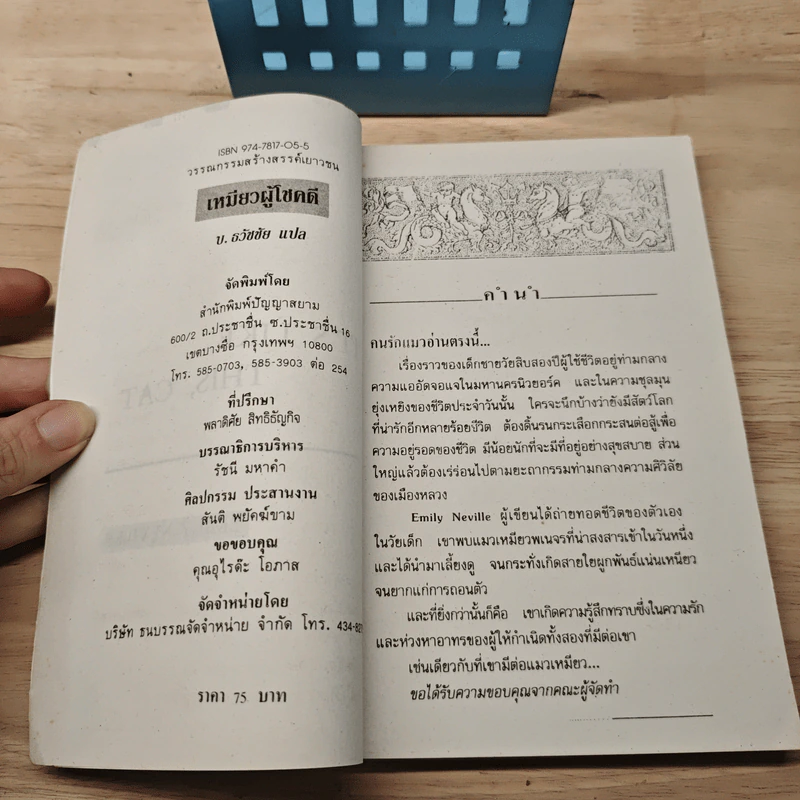 ISBN 974-7817-05-5
วรรณกรรมสร้างสรรค์เยาวชน
เหมียวผู้โชคดี
บ. ธวัชชัย แปล
จัดพิมพ์โดย
สำนักพิมพ์ปัญญาสยาม
600/2 ถ.ประชาชื่น ซ.ประชาชื่น 16
เขตบางซื่อ กรุงเทพฯ 10800
โทร. 585-0703, 585-3903 ต่อ 254
ที่ปรึกษา
พลาดิศัย สิทธิธัญกิจ
บรรณาธิการบริหาร
รัชนี มหาคำ
ศิลปกรรม ประสานงาน
สันติ พยัคฆ์ขาม
ขอขอบคุณ
คุณอุไรด๊ะ โอภาส
จัดจำหน่ายโดย
บริษัท ธนบรรณจัดจำหน่าย จำกัด โทร.
ราคา 75 บาท
คำนำ
คนรักแมวอ่านตรงนี้...
เรื่องราวของเด็กชายวัยสิบสองปีผู้ใช้ชีวิตอยู่ท่ามกลาง
ความแออัดจอแจในมหานครนิวยอร์ค และในความชุลมุน
ยุ่งเหยิงของชีวิตประจำวันนั้น ใครจะนึกบ้างว่ายังมีสัตว์โลก
ที่น่ารักอีกหลายร้อยชีวิต ต้องดิ้นรนกระเสือกกระสนต่อสู้เพื่อ
ความอยู่รอดของชีวิต มีน้อยนักที่จะมีที่อยู่อย่างสุขสบาย ส่วน
ใหญ่แล้วต้องเร่ร่อนไปตามยะถากรรมท่ามกลางความศิวิลัย
ของเมืองหลวง
Emily Neville ผู้เขียนได้ถ่ายทอดชีวิตของตัวเอง
ในวัยเด็ก เขาพบแมวเหมียวพเนจรที่น่าสงสารเข้าในวันหนึ่ง
และได้นำมาเลี้ยงดู จนกระทั่งเกิดสายใยผูกพันธ์แน่นเหนียว
จนยากแก่การถอนตัว
และที่ยิ่งกว่านั้นก็คือ เขาเกิดความรู้สึกทราบซึ้งในความรัก
และห่วงหาอาทรของผู้ให้กำเนิดทั้งสองที่มีต่อเขา
เช่นเดียวกับที่เขามีต่อแมวเหมียว...
ขอได้รับความขอบคุณจากคณะผู้จัดทำ